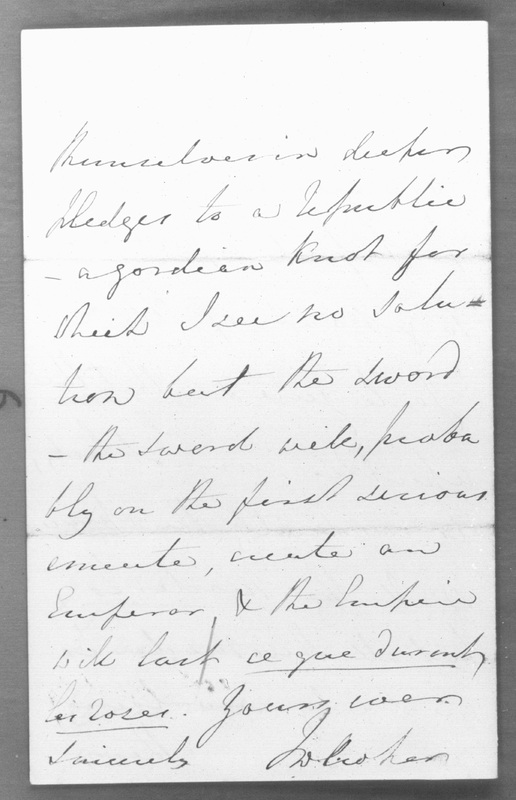 themselves in deeper
pledges to a republic
- a gordian knot for
which I see no solu=
tion but the sword
- the sword will, proba
bly on the first serious
emeute, create an
Emperor, & the Empire
will last ce que durent
les roses. Yours ever
sincerely JW Croker